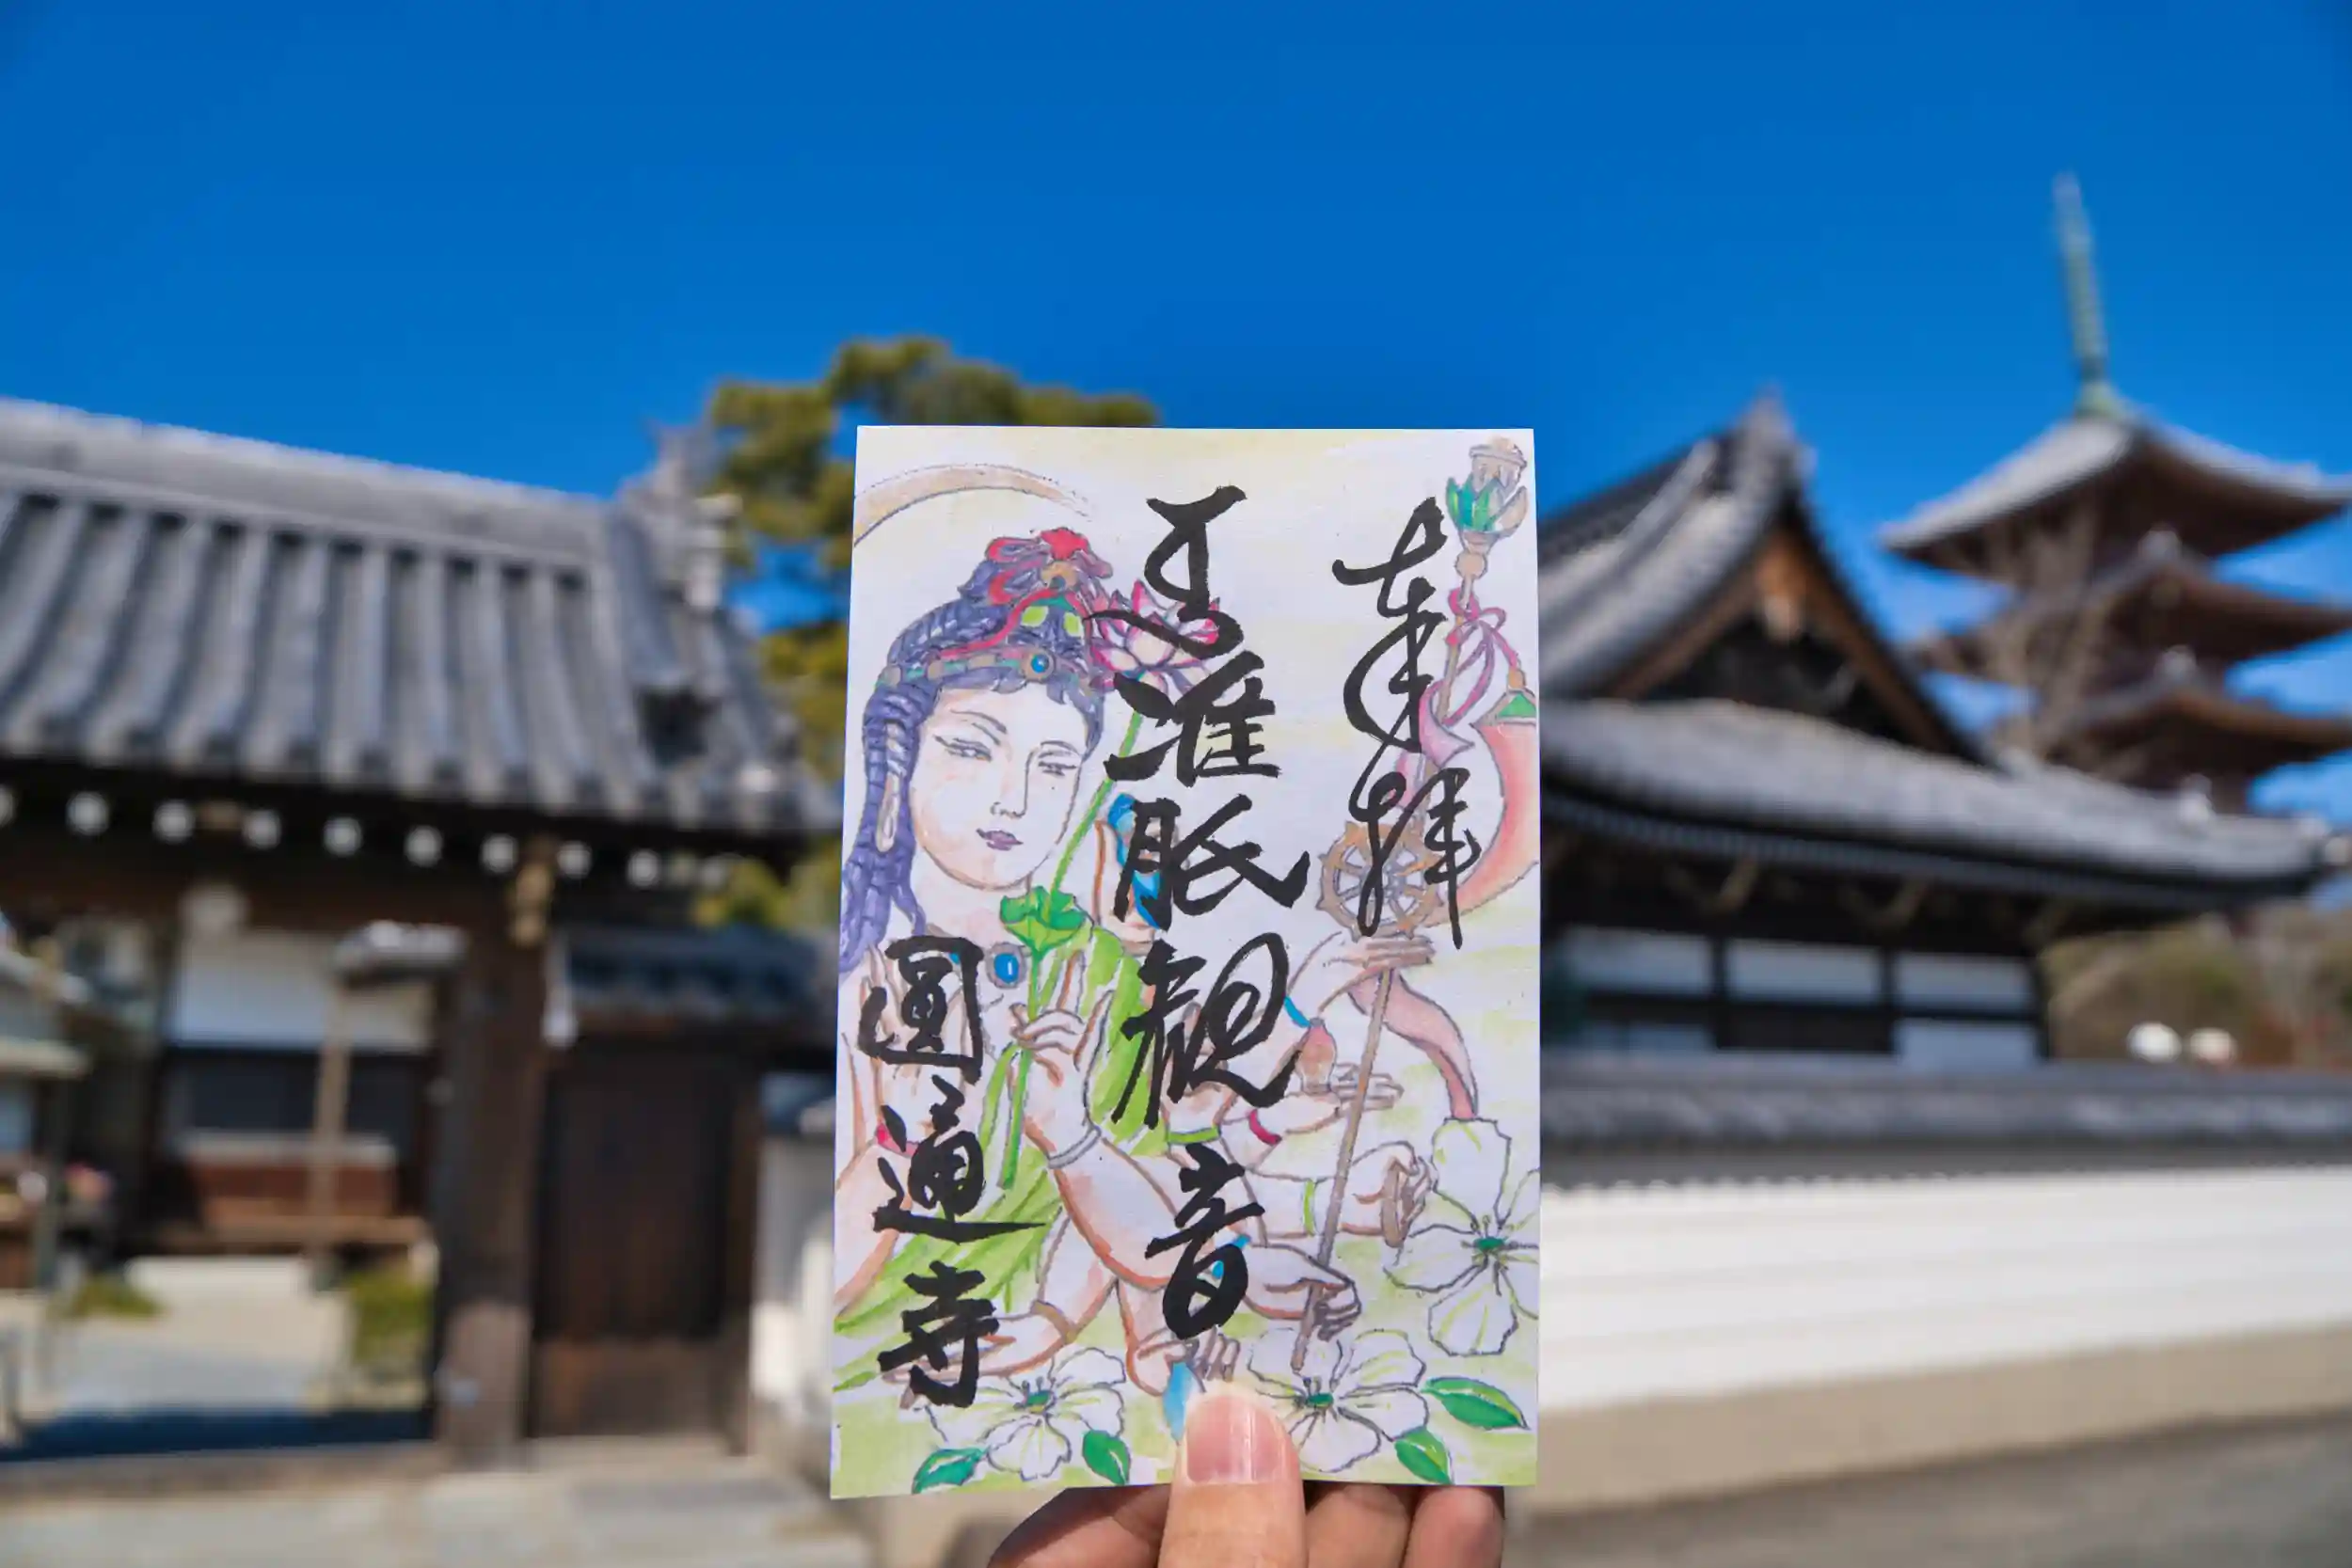 奉拝
准胝観音
圓通寺